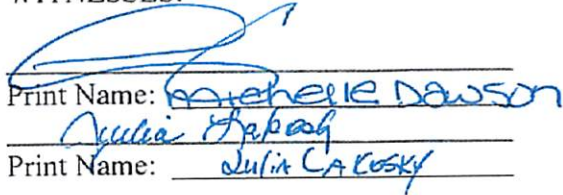 WITNESSES:
Print Name: Michelle Dawson
Julia
Print Name: Julia Cakosky